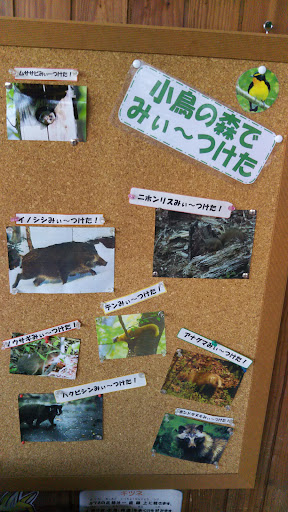 小鳥の森で
みぃ～つけた
ムササビみぃ～つけた！
ニホンリスみぃ～つけた！
イノシシみぃ～つけた！
テンみぃ～つけた！
ノウサギみぃ～つけた！
アナグマみぃ～つけた！
ハクビシンみぃ～つけた！
ホンドタヌキみぃ～つけた！
キツネ